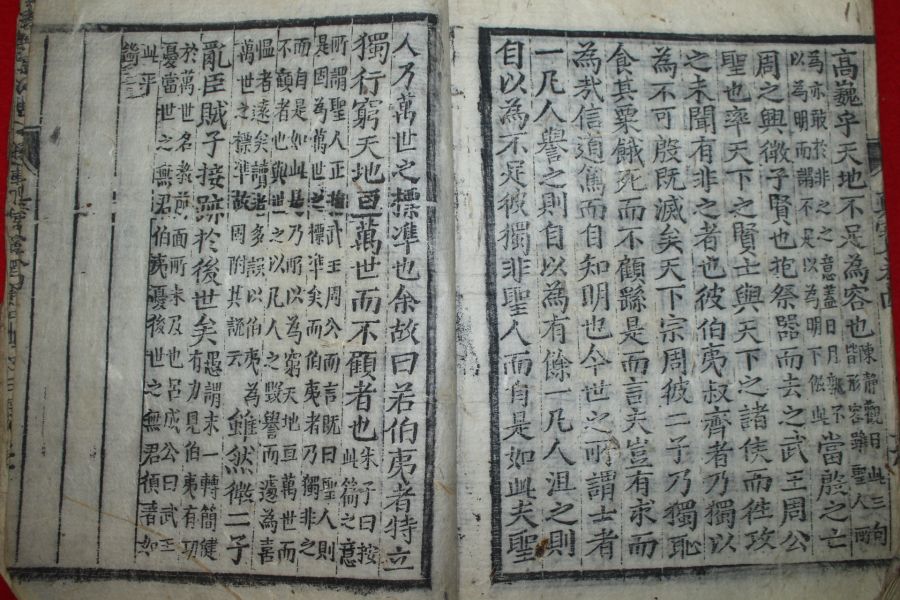 高巍乎天地不足為容也陳靜觀曰此三句
皆形容雖聖人所
為亦敢於非之之意蓋日月不
以為明而謂不足以為明下倣此
當殷之亡
周之興微子賢也抱祭器而去之武王周公
聖也率天下之賢士與天下之諸侯而徃攻
之未聞有非之者也彼伯夷叔齊者乃獨以
為不可殷既滅矣天下宗周彼二子乃獨恥
食其粟餓死而不顧繇是而言夫豈有求而
為哉信道篤而自知明也今世之所謂士者
一凡人譽之則自以為有餘一凡人沮之則
自以為不足彼獨非聖人而自是如此夫聖
人乃萬世之標準也余故曰若伯夷者特立
獨行窮天地亘萬世而不顧者也朱子曰按
此篇之意
所謂聖人正指武王周公而言旣曰聖人則
是固為萬世之標準矣而伯夷者乃獨非之
而自是如此是乃所以為窮天地亘萬世而
不顧者也與世以凡人之毀譽而遽為喜
慍者遠矣讀者多誤以伯夷為
萬世之標準故因附其說云
雖然微二子
亂臣賊子接跡於後世矣愚謂末一轉簡健
有力見伯夷有功
於萬世名教前面所未及也呂成公曰武王
憂當世之無君伯夷憂後世之無君